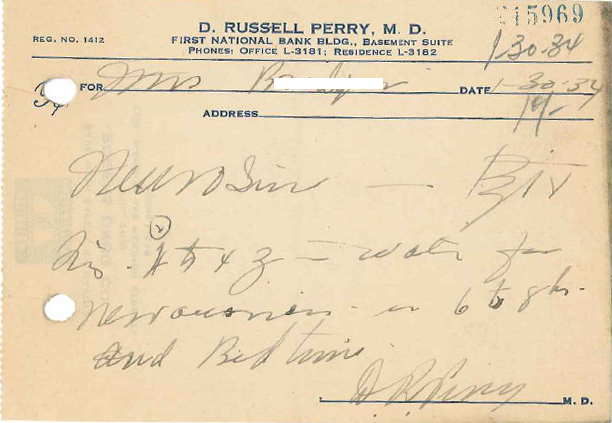 215969
D. RUSSELL PERRY, M. D.
REG. NO. 1412
FIRST NATIONAL BANK BLDG., BASEMENT SUITE
PHONES: OFFICE L-3181; RESIDENCE L-3182
1-30-34
FOR Mrs
DATE 1-30-34
ADDRESS
Neurosine —
2
Sig. to 4 water for
nervousness - in 6 to 8 hrs.
and Bed time.
D. R. Perry M. D.